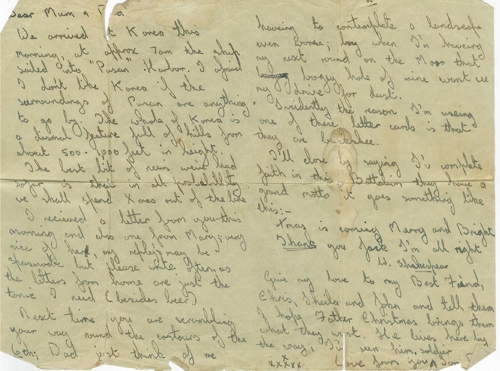 Dear Mum & Pa
We arrived at Korea this
morning at approx 7am the ship
sailed into "Pusan" Harbor. I afraid
I dont like Korea if the
surroundings of Pusan are anything
to go by. The whole of Korea is
a dismal feature full of hills from
about 500-1,000 feet in height.
The best bit of news we've heard
so far is that in all possibility
we shall spend Xmas out of the line
I received a letter from you this
morning and also one from Mary; very
nice of her, my reply may be
spasmodic but please write often as
the letters from home are just the
tonic I need (besides beer)
Next time you are scrambling
your way round the contours of the
6th, Dad just think of me
having to contemplate a landscape
even worse; boy when I'm having
my next round on the Moor that
boogy hole of mine wont see
my drive for dust.
Evidently the reason I'm using
one of these letter cards is that
they are
I'll close saying I've complete
faith in this Battalion they have a
grand motto it goes something like
this:-
Xmas is coming Merry and Bright
Thank you Jack I'm all right
W. Shakespear
Give my love to my Best Friend,
Chris, Sheila and John and tell them
I hope Father Christmas brings them
what they want. He lives here by
the way, I've seen him, soldier
Love from your Son
xxxxx